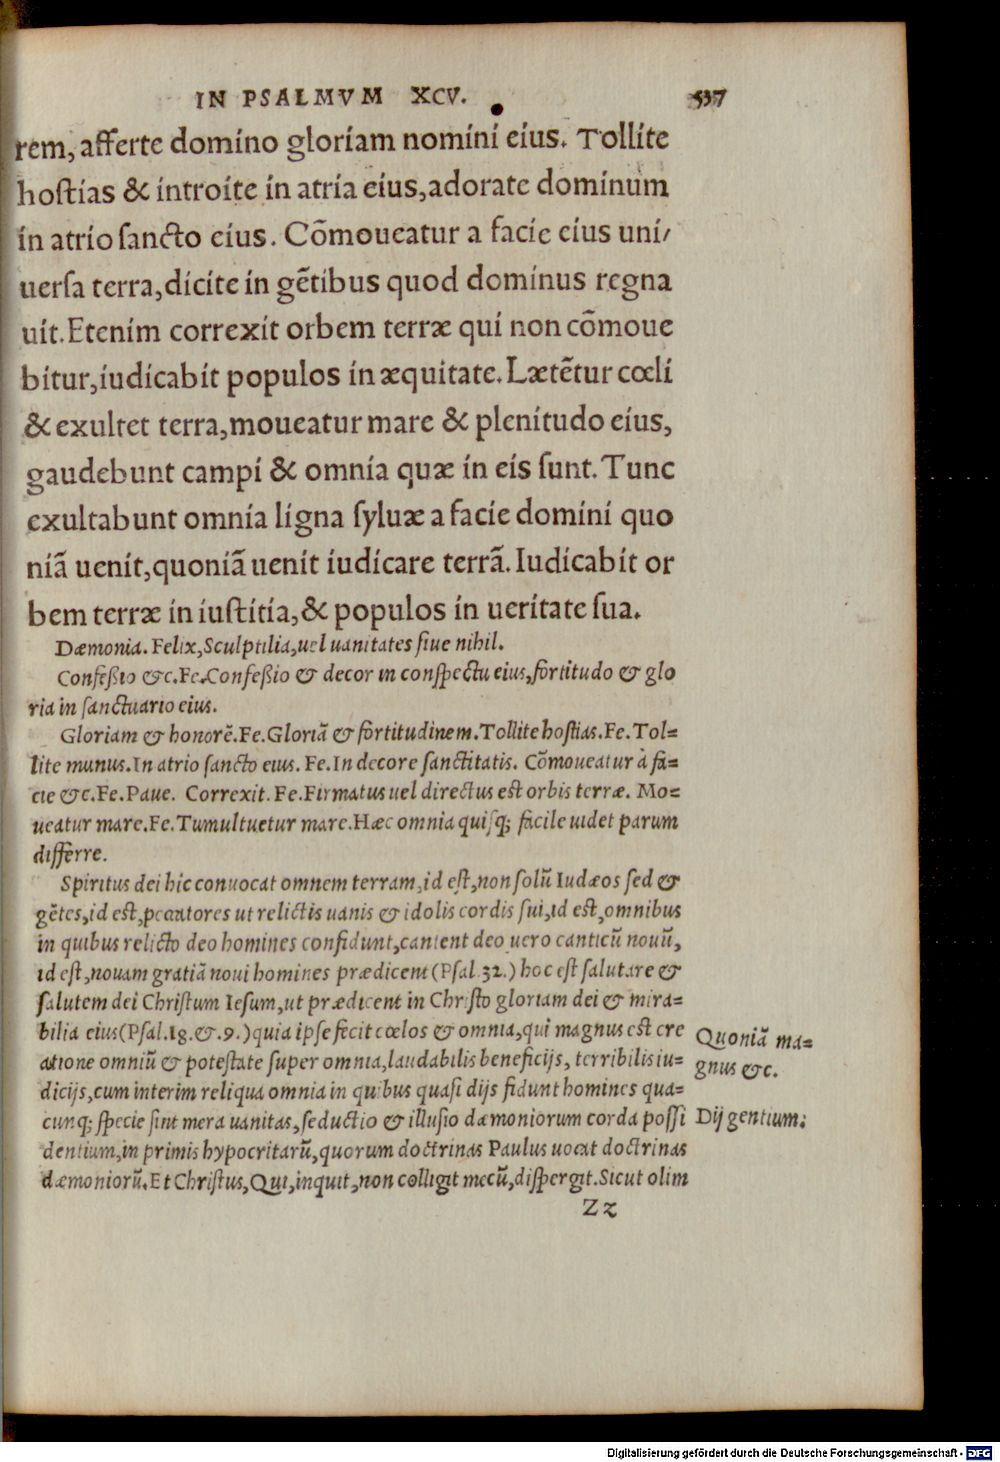 IN PSALMVM XCV. 537
rem, afferte domino gloriam nomini eius. Tollite
hoſtias & introite in atria eius,adorate dominum
in atrio ſancto eius. Cõmoueatur a facie eius uni/
uerſa terra,dicite in gẽtibus quod dominus regna
uit.Etenim correxit orbem terræ qui non cõmoue
bitur,iudicabit populos in æquitate.Lætẽtur cœli
& exultet terra,moueatur mare & plenitudo eius,
gaudebunt campi & omnia quæ in eis ſunt.Tunc
exultabunt omnia ligna ſyluæ a facie domini quo
niã uenit,quoniã uenit iudicare terrã.Iudicabit or
bem terræ in iuſtitia,& populos in ueritate ſua.
Dæmonia. Felix,Sculptilia,uel uanitates ſiue nihil.
Confeßio &c.Fe.Confeßio & decor in conſpectu eius,fortitudo & glo
ria in ſanctuario eius.
Gloriam & honorẽ.Fe.Gloriã & fortitudinem.Tollite hoſtias.Fe.Tol=
lite munus.In atrio ſancto eius. Fe.In decore ſanctitatis. Cõmoueatur à fa=
cie &c.Fe.Paue. Correxit. Fe.Firmatus uel directus est orbis terræ. Mo=
ueatur mare.Fe.Tumultuetur mare.Hæc omnia quiſq; facile uidet parum
differre.
Spiritus dei hic conuocat omnem terram,id eſt,non ſolũ Iudæos ſed &
gẽtes,id est,peccatores ut relictis uanis & idolis cordis ſui,id est,omnibus
in quibus relicto deo homines confidunt,canient deo uero canticũ nouũ,
id est,nouam gratiã noui homines prædicent(Pſal.32.) hoc est ſalutare &
ſalutem dei Chriſtum Ieſum,ut prædicent in Chriſto gloriam dei & mira=
bilia eius(Pſal.18.&.9.)quia ipſe fecit cœlos & omnia,qui magnus est cre
atione omniũ & poteſtate ſuper omnia,laudabilis beneficijs, terribilis iu=
dicijs,cum interim reliqua omnia in quibus quaſi dijs fidunt homines qua=
cunq; ſpecie ſint mera uanitas,ſeductio & illuſio dæmoniorum corda poſſi
dentium,in primis hypocritarũ,quorum doctrinas Paulus uocat doctrinas
dæmoniorũ.Et Chriſtus,Qui,inquit,non colligit mecũ,diſpergit.Sicut olim
Quoniã ma=
gnus &c.
Dij gentium.
Zz
Digitalisierung gefördert durch die Deutsche Forschungsgemeinschaft - DFG